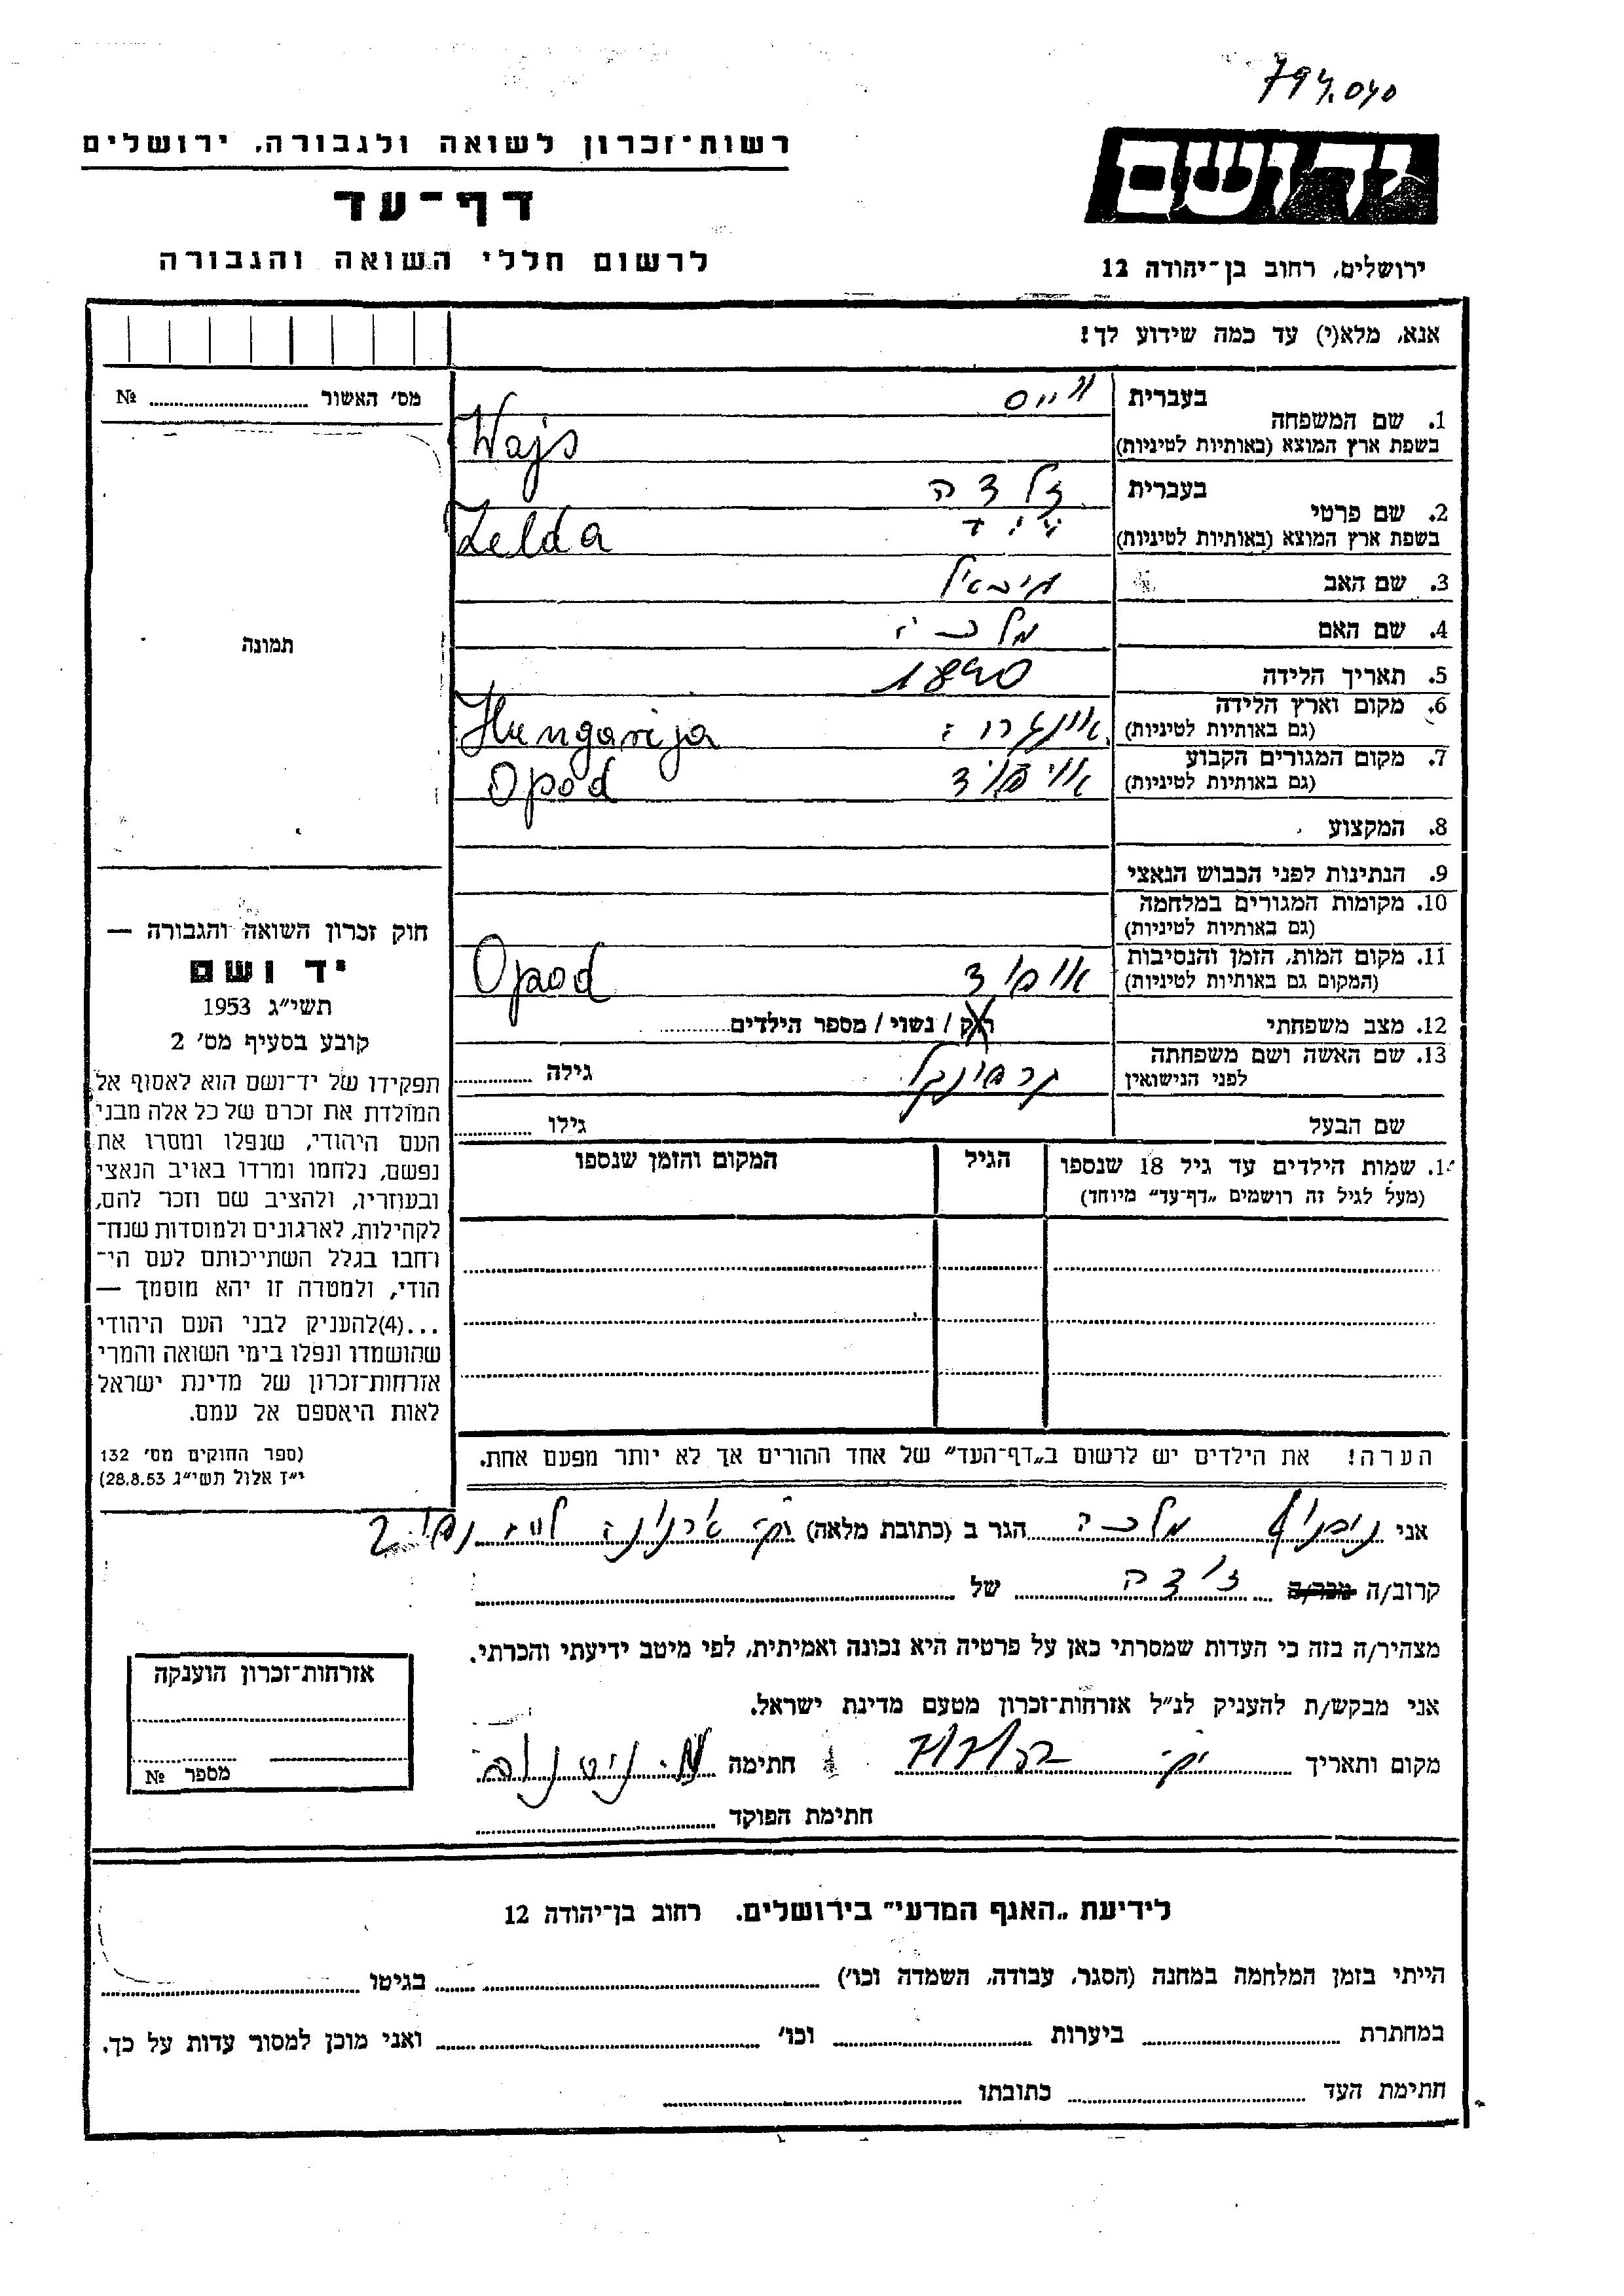 794.040
רשות־זכרון לשואה ולגבורה, ירושלים
דף־עד
לרשום חללי השואה והגבורה
יד ושם
ירושלים, רחוב בן־יהודה 12
אנא, מלא(י) עד כמה שידוע לך!
מס׳ האשור ........ №
תמונה
1. שם המשפחה
בעברית
ווייס
בשפת ארץ המוצא (באותיות לטיניות)
Wajs
2. שם פרטי
בעברית
זלדה
בשפת ארץ המוצא (באותיות לטיניות)
Zelda
3. שם האב
מיכאל
4. שם האם
מלכה
5. תאריך הלידה
1890
6. מקום וארץ הלידה
(גם באותיות לטיניות)
Hungarija
7. מקום המגורים הקבוע
(גם באותיות לטיניות)
Opod
8. המקצוע
9. הנתינות לפני הכבוש הנאצי
10. מקומות המגורים במלחמה
(גם באותיות לטיניות)
11. מקום המות, הזמן והנסיבות
(המקום גם באותיות לטיניות)
Opod
12. מצב משפחתי
רוק / נשוי / מספר הילדים........
13. שם האשה ושם משפחתה
לפני הנישואין
גילה ........
שם הבעל
גילו ........
שמות הילדים עד גיל 18 שנספו
(מעל לגיל זה רושמים „דף־עד״ מיוחד)
הגיל
המקום והזמן שנספו
הערה! את הילדים יש לרשום ב„דף־העד״ של אחד ההורים אך לא יותר מפעם אחת.
חוק זכרון השואה והגבורה —
יד ושם
תשי״ג 1953
קובע בסעיף מס׳ 2
תפקידו של יד־ושם הוא לאסוף אל
המולדת את זכרם של כל אלה מבני
העם היהודי, שנפלו ומסרו את
נפשם, נלחמו ומרדו באויב הנאצי
ובעוזריו, ולהציב שם וזכר להם,
לקהילות, לארגונים ולמוסדות שנח־
רחבו בגלל השתייכותם לעם הי־
הודי, ולמטרה זו יהא מוסמך —
...(4)להעניק לבני העם היהודי
שהושמדו ונפלו בימי השואה והמרי
אזרחות־זכרון של מדינת ישראל
לאות היאספם אל עמם.
(ספר החוקים מס׳ 132
י״ז אלול תשי״ג 28.8.53)
אני מלכה הגר ב (כתובת מלאה)
קרוב/ה מכר/ה זלדה של ........
מצהיר/ה בזה כי העדות שמסרתי כאן על פרטיה היא נכונה ואמיתית, לפי מיטב ידיעתי והכרתי.
אני מבקש/ת להעניק לנ״ל אזרחות־זכרון מטעם מדינת ישראל.
מקום ותאריך חתימה
חתימת הפוקד ........
אזרחות־זכרון הוענקה
מספר №
לידיעת „האגף המדעי״ בירושלים, רחוב בן־יהודה 12
הייתי בזמן המלחמה במחנה (הסגר, עבודה, השמדה וכו׳) ........ בגיטו ........
במחתרת ........ ביערות ........ וכו׳ ........ ואני מוכן למסור עדות על כך.
חתימת העד ........ כתובתו ........